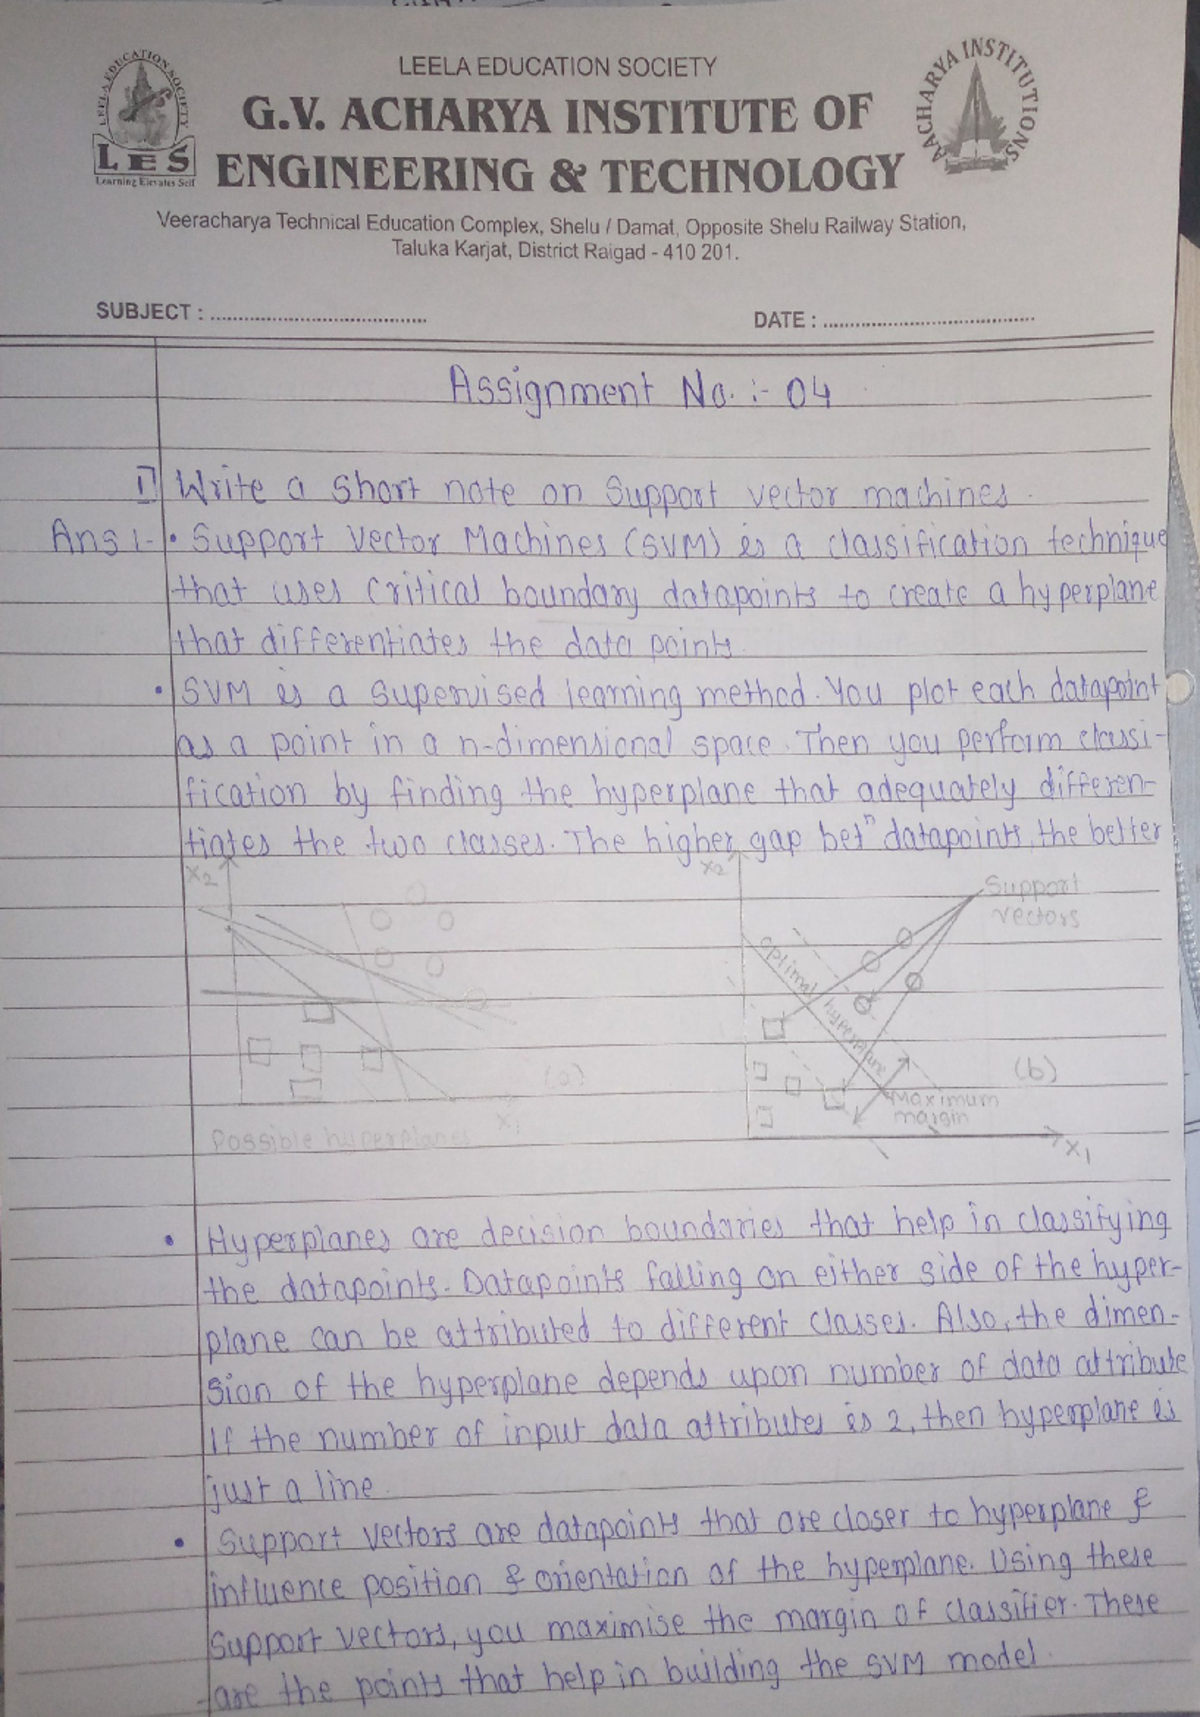 LEELA EDUCATION SOCIETY
LES
Learning Elevates Self
LEELA EDUCATION SOCIETY
G.V. ACHARYA INSTITUTE OF
ENGINEERING & TECHNOLOGY
AACHARYA INSTITUTIONS
Veeracharya Technical Education Complex, Shelu / Damat, Opposite Shelu Railway Station,
Taluka Karjat, District Raigad - 410 201.
SUBJECT : ......................................
DATE : ......................................
Assignment No. :- 04
1] Write a short note on Support vector machines.
Ans:- • Support Vector Machines (SVM) is a classification technique
that uses critical boundary datapoints to create a hyperplane
that differentiates the data points
• SVM is a supervised learning method. You plot each datapoint
as a point in a n-dimensional space. Then you perform classi-
fication by finding the hyperplane that adequately differen-
tiates the two classes. The higher gap betⁿ datapoints, the better
x2
(a)
x1
Possible hyperplanes
x2
Support
vectors
optimal hyperplane
(b)
Maximum
margin
x1
• Hyperplanes are decision boundaries that help in classifying
the datapoints. Datapoints falling on either side of the hyper-
plane can be attributed to different classes. Also, the dimen-
sion of the hyperplane depends upon number of data attribute
If the number of input data attributes is 2, then hyperplane is
just a line.
• Support vectors are datapoints that are closer to hyperplane &
influence position & orientation of the hyperplane. Using these
support vectors, you maximise the margin of classifier. These
are the points that help in building the SVM model.